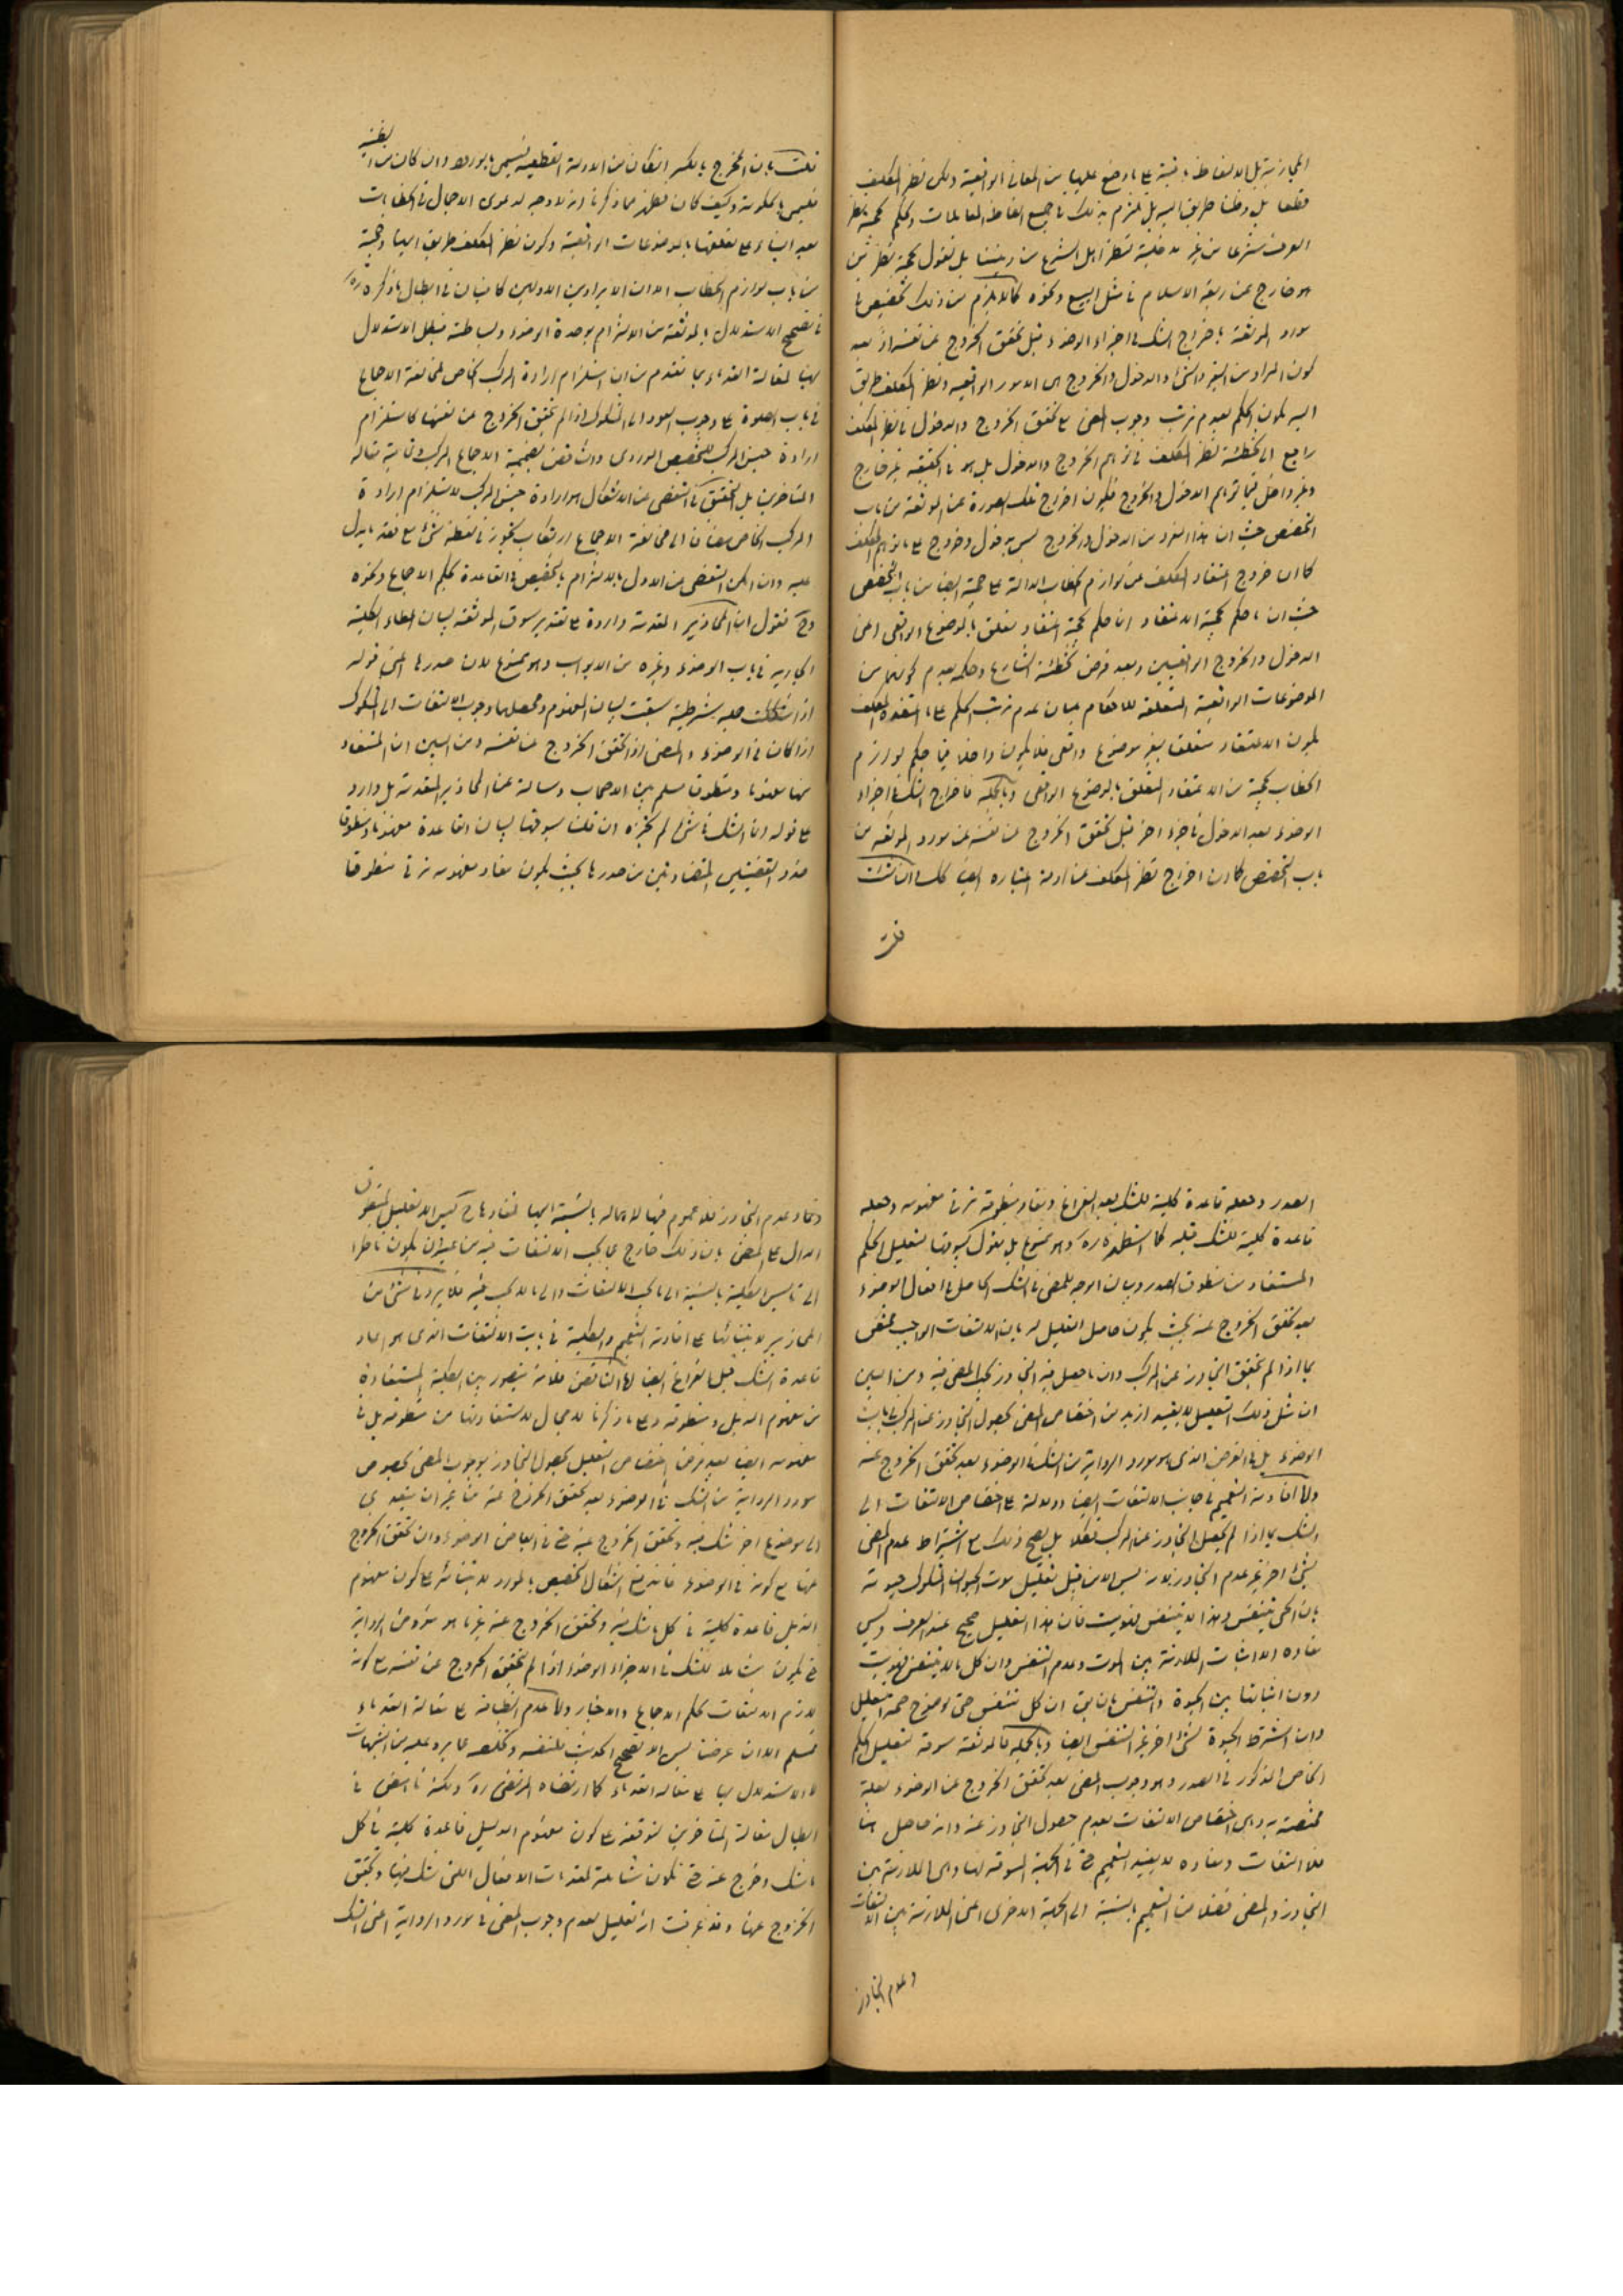 المجازية بل الالفاظ باقية على ما وضع عليها من المعاني الواقعية ولكن نظر المكلف
قطعا بل وظنا طريق اليه بل نلتزم بذلك في جميع الفاظ المعاملات ونحكم بحجية نظر
العرف شرعا من غير مدخلية لنظر اهل الشرع من ديننا بل نقول بحجية نظر من
هو خارج عن ربقة الاسلام في مثل البيع ونحوه كما لا يلزم من ذلك تخصيص في
مورد الموثقة باخراج الشك في اجزاء الوضوء قبل تحقق الخروج عن نفسه اذ بعد
كون المراد من الغير والشيء والدخول والخروج هي الامور الواقعية ونظر المكلف طريق
اليه يكون الحكم بعدم ترتب وجوب المضي مع تحقق الخروج والدخول في نظر المكلف
راجع الى تخطئة نظر المكلف في توهم الخروج والدخول بل هو في الحقيقة غير خارج
وغير داخل فيما توهم الدخول والخروج فيكون اخراج تلك الصورة عن الموثقة من باب
التخصص حيث ان هذا الفرد من الدخول والخروج ليس بدخول وخروج على ما توهم المكلف
كما ان خروج اعتقاد المكلف عن لوازم الخطاب الدالة على حجية ايضا من باب التخصص
حيث ان ما حكم بحجية الاعتقاد انما حكم بحجية اعتقاد متعلق بالموضوع الواقعي اعني
الدخول والخروج الواقعيين وبعد فرض تخطئة الشارع وحكمه بعدم كونهما من
الموضوعات الواقعية المتعلقة للاحكام ببيان عدم ترتب الحكم على ما اعتقده المكلف
يكون الاعتقاد متعلقا بغير موضوع واقعي فلا يكون داخلا فيما حكم لوازم
الخطاب بحجية من الاعتقاد المتعلق بالموضوع الواقعي وبالجملة فاخراج الشك في اجزاء
الوضوء بعد الدخول في جزء اخر قبل تحقق الخروج عن نفسه عن مورد الموثقة من
باب التخصص كما ان اخراج نظر المكلف عن ادلة اعتباره ايضا كذلك ان قلت
قلت
قلت بان المخرج بالكسر ان كان من الادلة القطعية فيسمى بالورود وان كان من الظنية
فليسم بالحكومة وكيف كان فظهر مما ذكرنا انه لا وجه لدعوى الاجمال في الخطابات
بعد البناء على تعلقها بالموضوعات الواقعية وكون نظر المكلف طريق اليها وحجية
من باب لوازم الخطاب الا ان الايرادين الاولين كافيان في ابطال ما ذكره ره
في تصحيح الاستدلال بالموثقة من الالتزام بوحدة الوضوء وبساطته فبطل الاستدلال
بها لمقالة القدماء بما تقدم من ان استلزام ارادة المركب الخاص لمخالفة الاجماع
في باب الصلوة على وجوب العود الى المشكوك اذا لم يتحقق الخروج عن نفسها كاستلزام
ارادة جنس المركب للتخصيص الموردي وانتقض بضميمة الاجماع المركب وقاية مقالة
المتاخرين بل التحقيق في التفصي عن الاشكال هو ارادة جنس المركب لاستلزام ارادة
المركب الخاص مضافا الى مخالفة الاجماع ارتكاب تجوز في لفظ شيء مع فقد ما يدل
عليه وان امكن التفصي عن الاول بالالتزام بالتخصيص في القاعدة بحكم الاجماع ونحوه
وح نقول ان المحاذير المتقدمة واردة على تقدير سوق الموثقة لبيان اعطاء الكلية
الجارية في باب الوضوء وغيره من الابواب وهو ممنوع لان صدرها اعني قوله
اذا شككت جملة شرطية سيقت لبيان المفهوم ومحصلها وجوب الالتفات الى المشكوك
اذا كان في الوضوء والمضي اذا تحقق الخروج عن نفسه ومن البين ان المستفاد
منها مفهوما ومنطوقا مسلم بين الاصحاب وسالمة عن المحاذير المتقدمة بل وارد
على قوله انما الشك في شيء لم تجزه ان قلنا بسوقها لبيان القاعدة مفهوما ومنطوقا
مفاد القضيتين المتضادتين من صدرها بحيث يكون مفاد مفهومه ترقى منطوقا
الصدر وجعله قاعدة كلية للشك بعد الفراغ ومفاد منطوقه ترقى مفهومه وجعله
قاعدة كلية للشك قبله كما استظهره ره وهو ممنوع بل نقول بسوقها لتعليل الحكم
المستفاد من منطوق الصدر وبيان الوجه للمضي في الشك الحاصل في افعال الوضوء
بعد تحقق الخروج عنه بحيث يكون حاصل التعليل له بان الالتفات الواجب مختص
بما اذا لم يتحقق التجاوز عن المركب وان ما حصل فيه التجاوز يجب المضي فيه ومن البين
ان مثل ذلك التعليل لا يفيد ازيد من اختصاص المضي بحصول التجاوز عن المركب في باب
الوضوء بل في الفرض الذي هو مورد الرواية من الشك في الوضوء بعد تحقق الخروج عنه
ولا افادة التعميم في جانب الالتفات ايضا ودلالة على اختصاص الالتفات الى
الشك بما اذا لم يحصل التجاوز عن المركب فعلا بل يصح ذلك مع اشتراط عدم المضي
بشيء اخر غير عدم التجاوز بلا ريب لان من قبيل تعليل موت الحيوان المشكوك حيوته
بان الحي يتنفس وهذا لا يتنفس فهو ميت فان هذا التعليل صحيح عند العرف وليس
مفاده الا اثبات الملازمة بين الموت وعدم التنفس وان كل ما لا يتنفس فهو ميت
دون اثباتها بين الحيوة والتنفس بان يق ان كل متنفس حي لوضوح صحة التعليل
وان اشترط الحيوة بشيء اخر غير التنفس ايضا وبالجملة فالموثقة مسوقة لتعليل الحكم
الخاص المذكور في الصدر وهو وجوب المضي بعد تحقق الخروج عن الوضوء بعلة
مختصة به وهي اختصاص الالتفات بعدم حصول التجاوز عنه وانه حاصل هنا
فلا التفات ومفاده لا يفيد التعميم حتى في الجملة المسوقة لها وهي الملازمة بين
التجاوز والمضي فضلا عن التعميم بالنسبة الى الجملة الاخرى اعني الملازمة بين الالتفات
وعدم التجاوز
وعدم التجاوز فلا عموم فيها لاهماله بالنسبة اليها فمفادها ح ليس الا تعليل المنطوق
الدال على المضي بان ذلك خارج عما يجب الالتفات فيه من غير ان يكون ناظرا
الى تاسيس الكلية بالنسبة الى ما يجب الالتفات والى ما لا يجب فيه فلا يرد شيء من
المحاذير لابتنائها على افادته التعميم والكلية في باب الالتفات الذي هو مفاد
قاعدة الشك قبل الفراغ ايضا واما التناقض فلانه يتصور بين الكلية المستفادة
من مفهوم الذيل ومنطوقه وعلى ما ذكرنا لا مجال لاستفادتها من منطوقه بل في
مفهومه ايضا بعد فرض اختصاص التعليل بحصول التجاوز بوجوب المضي بخصوص
مورد الرواية من الشك في الوضوء بعد تحقق الخروج عنه من غير ان يتعدى
الى موضوع اخر شك فيه وتحقق الخروج عنه حتى في ابعاض الوضوء وان تحقق الخروج
عنها مع كونه في الوضوء فاندفع اشكال تخصيص المورد لابتنائه على كون مفهوم
الذيل قاعدة كلية في كل ما شك فيه وتحقق الخروج عنه غير ما هو مفروض الرواية
حتى يكون شاملا للشك في الاجزاء الوضوء اذا لم يتحقق الخروج عن نفسه مع كونه
لازم الالتفات بحكم الاجماع والاخبار واما عدم انطباقه على مقالة القدماء
فمسلم الا ان غرضنا ليس الا تصحيح الحديث بنفسه وتخلصه عما يرد عليه من الشبهات
لا الاستدلال بها على مقالة القدماء كما ارتضاه المرتضى ره ولكنه ناهض في
ابطال مقالة المتاخرين لتوقفه على كون مفهوم الذيل قاعدة كلية في كل
ما شك وخرج عنه حتى تكون شاملة لمقدمات الافعال التي شك فيها وتحقق
الخروج عنها وقد عرفت انه تعليل لعدم وجوب المضي في مورد الرواية اعني الشك